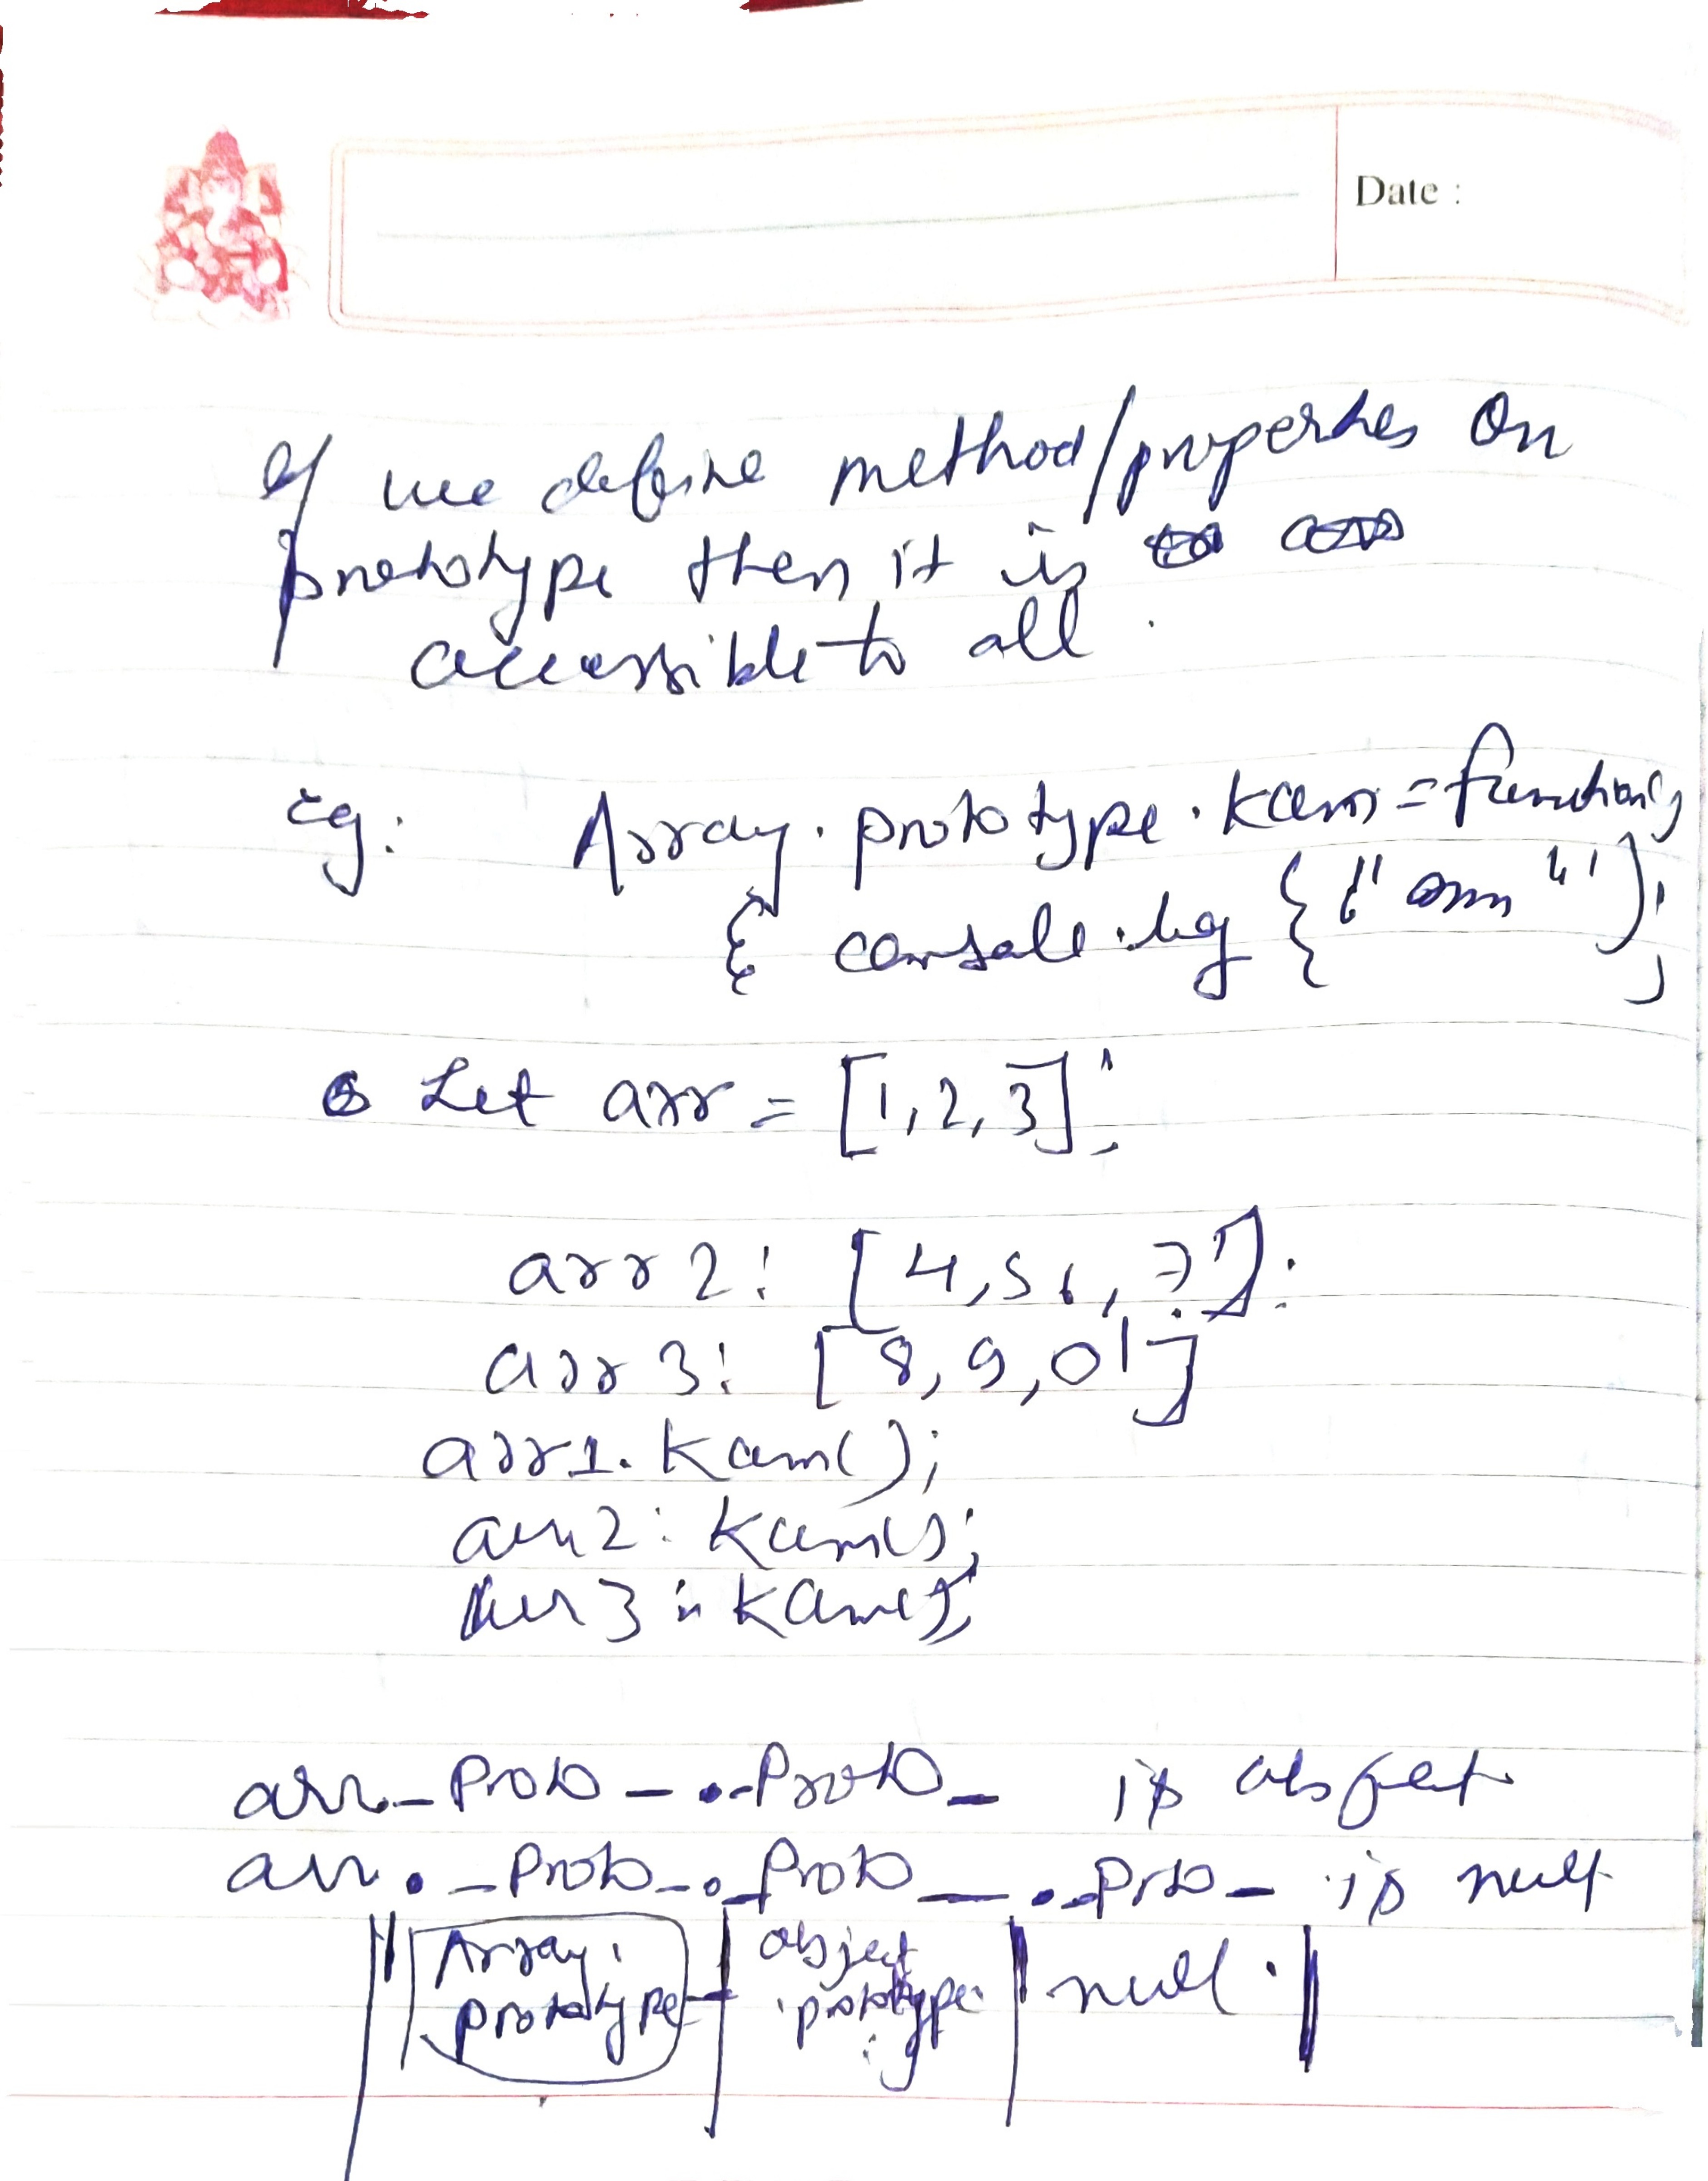 Date :
If we define method/properties on
prototype then it is
accessible to all.
eg: Array.prototype.kam=function()
{ console.log { ("omn");
Let arr = [1,2,3];
arr2: [4,5 6, 7];
arr3: [8,9,0]
arr1.kam();
arr2: kam();
arr3: kam();
arr._Proto_._Proto_ is object
arr._Proto_._Proto_._Proto_ is null
Array. object null.
prototype prototype